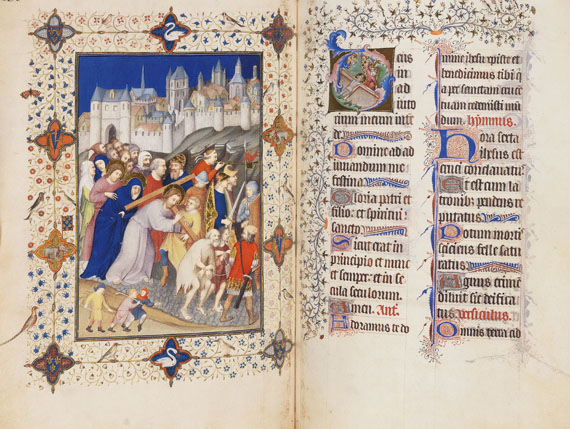 Deus
in
ad
iuto
rium meum inten
de.
Domine ad ad
iuuandum me
festina
Gloria patri et
filio: et spiritui
sancto.
Sicut erat in
principio et nunc
et semper: et in se
cula seculorum.
Amen. Ant.
Adoramus te do
mine ihesu xpiste et
benedicimus tibi q
per sanctam cruce
tuam redemisti mu
dum. hymnus.
Hora sexta
ihesus est
cruci conclauatus
Et est cum la
tronibus pendens re
putatus
Potum
felle satu
ratus
Agnus crimen
diluit sic
tus versiculus.
Omnis terra ad